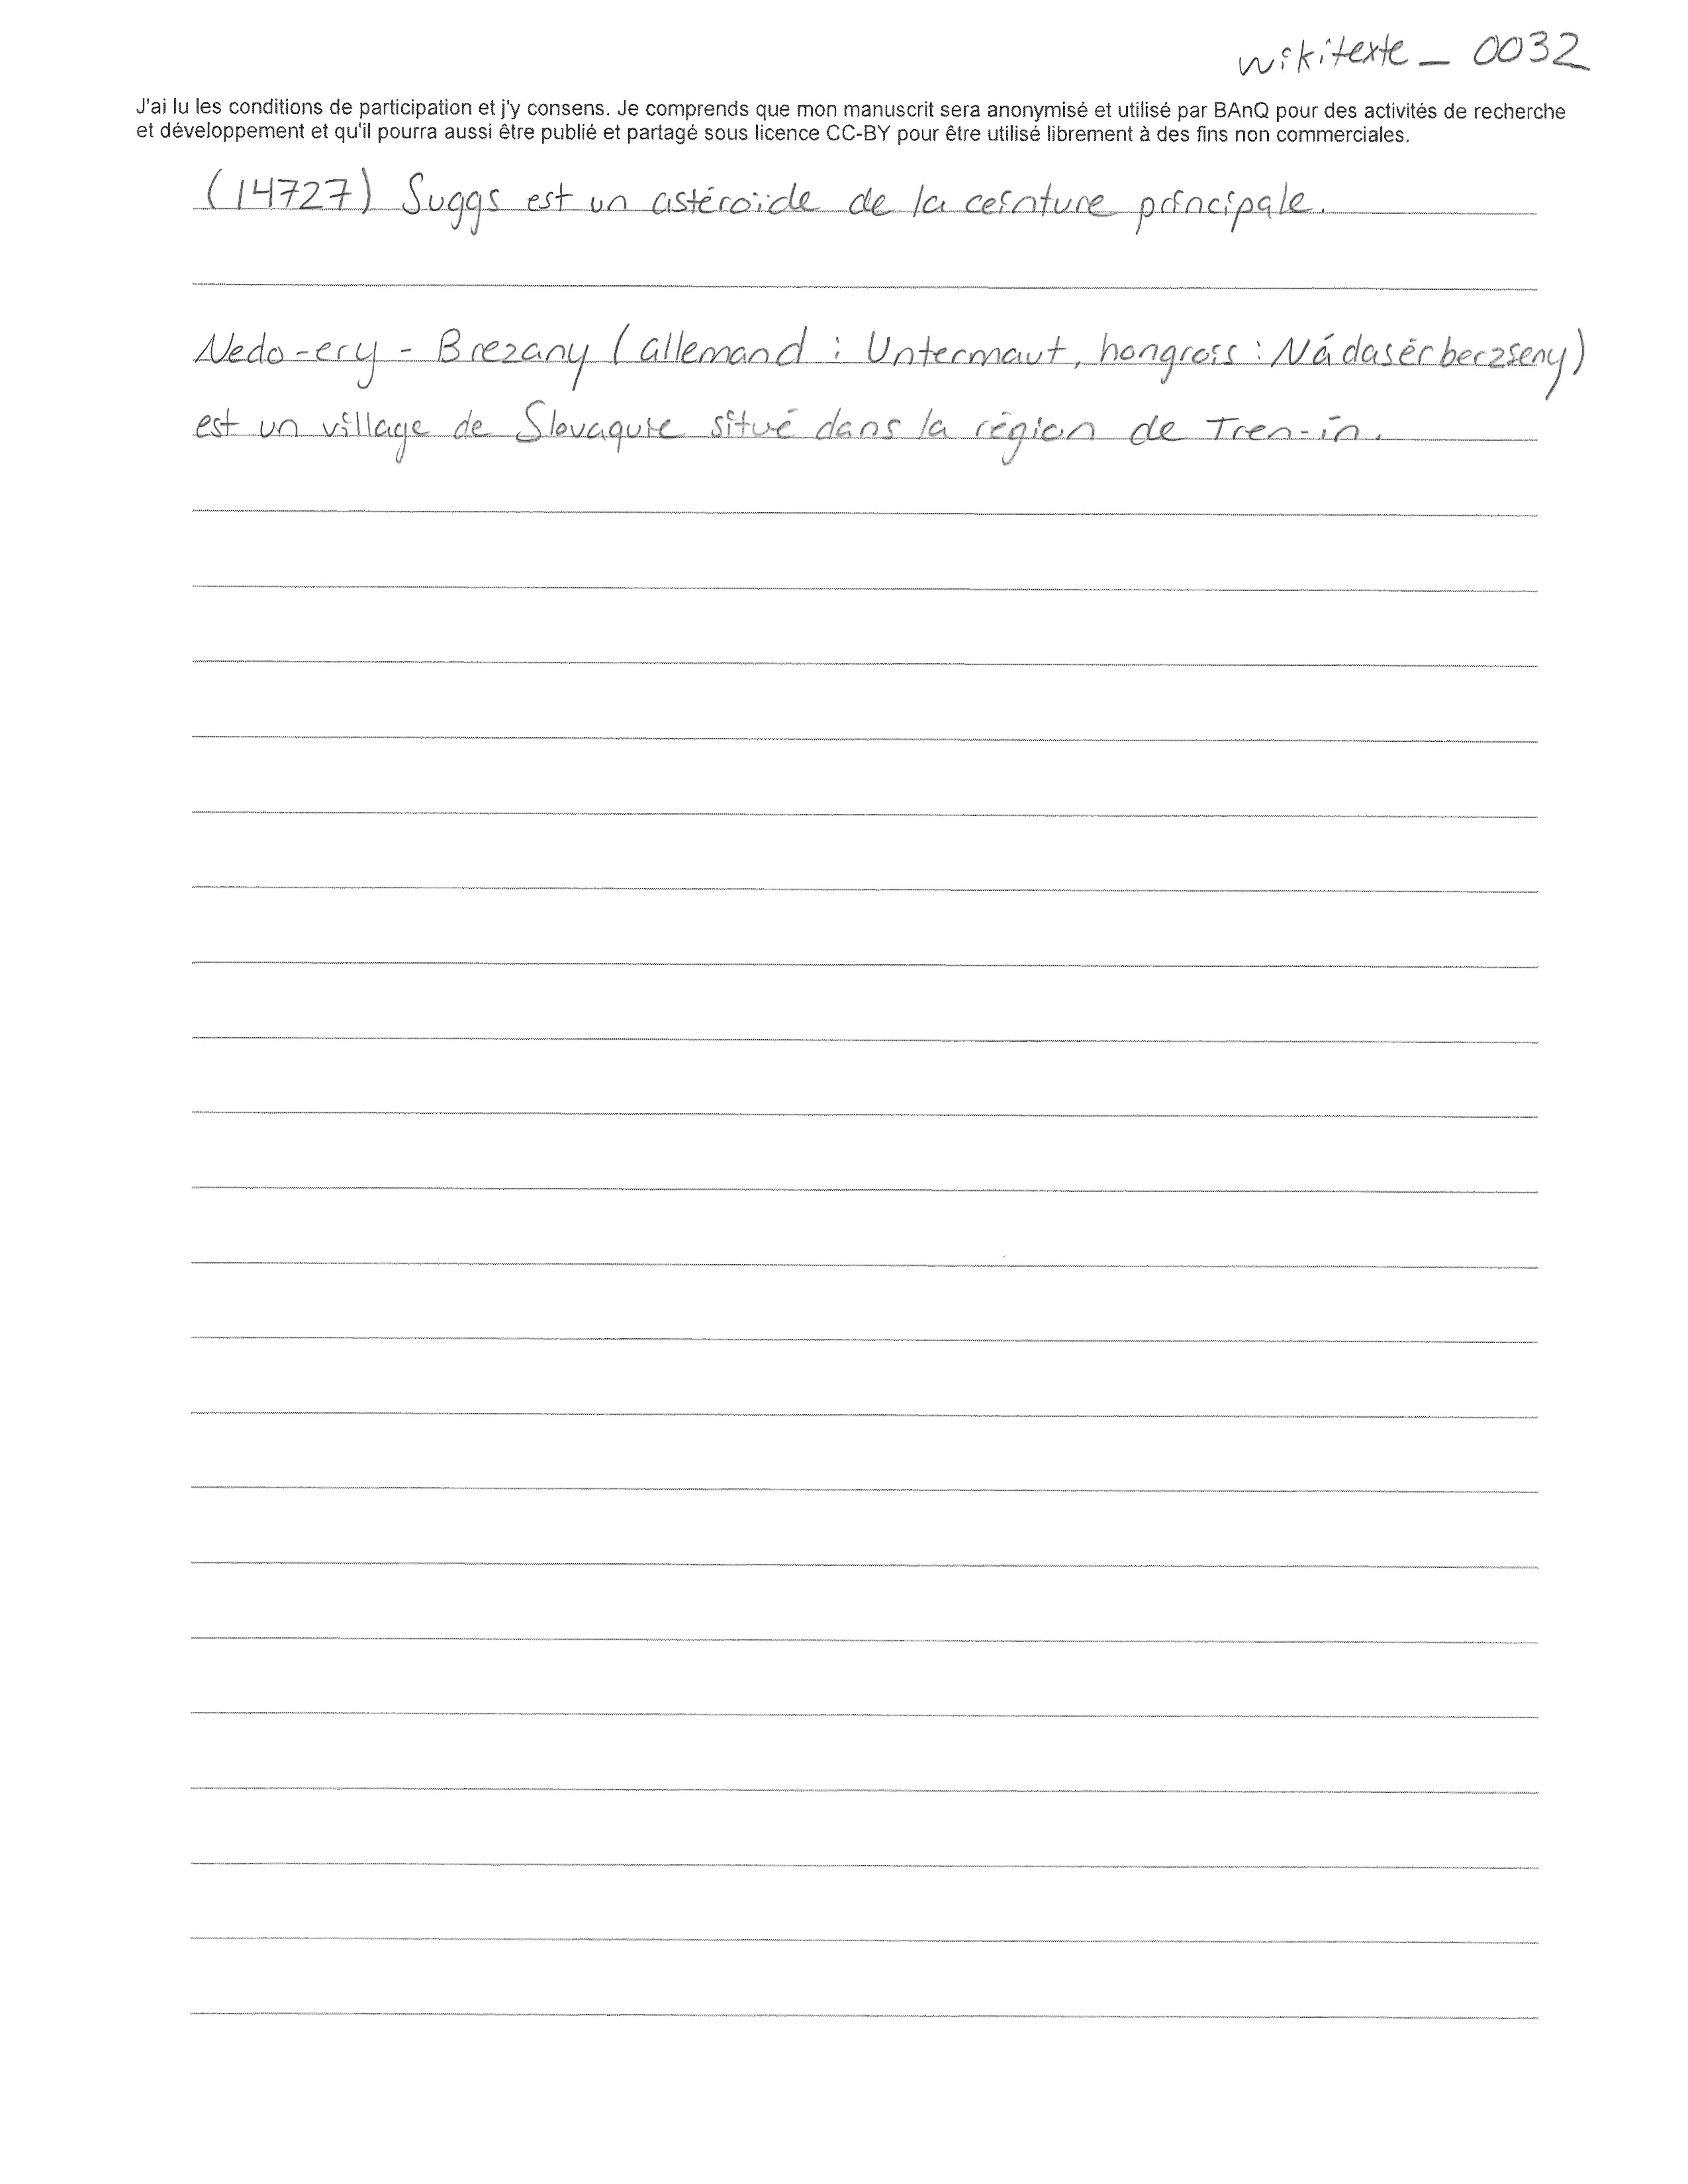 wikitexte_0032
J'ai lu les conditions de participation et j'y consens. Je comprends que mon manuscrit sera anonymisé et utilisé par BAnQ pour des activités de recherche
et développement et qu'il pourra aussi être publié et partagé sous licence CC-BY pour être utilisé librement à des fins non commerciales.
(14727) Suggs est un astéroïde de la ceinture principale.
Nedo-ery - Brezany (allemand : Untermaut, hongrois : Nádasérberzseny)
est un village de Slovaquie situé dans la région de Tren-ín.